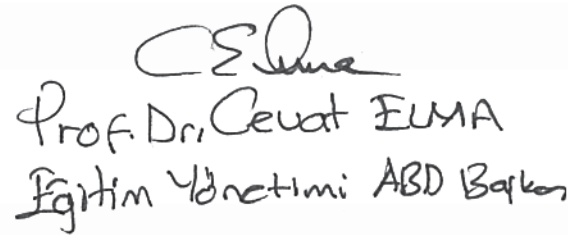 CElma
Prof. Dr. Cevat ELMA
Eğitim Yönetimi ABD Başkan